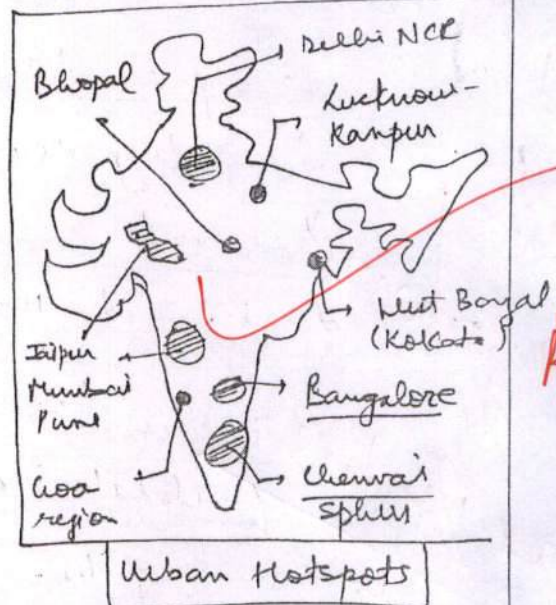 Delhi NCR
Bhopal
Lucknow-
Kanpur
West Bengal
(Kolkata)
Jaipur
Mumbai
Pune
Bangalore
Goa
region
Chennai
Sphus
Urban Hotspots